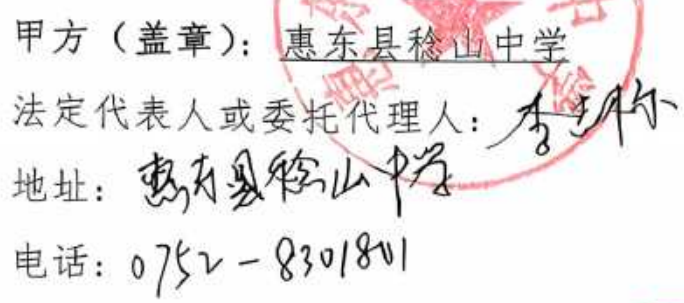 甲方（盖章）：惠东县稔山中学
法定代表人或委托代理人：李
地址：惠东县稔山中学
电话：0752-8301801